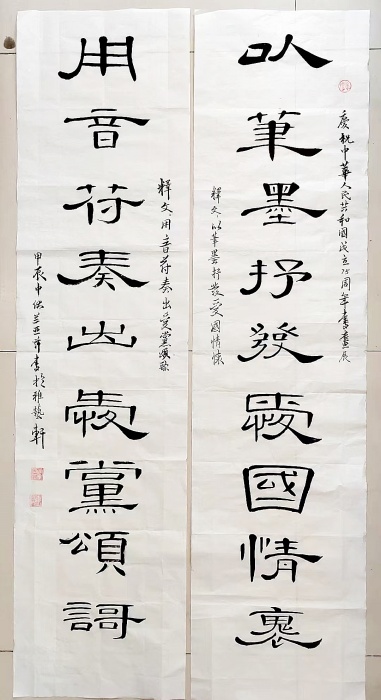 慶祝中華人民共和國成立75周年書畫展
以筆墨抒發愛國情褱
釋文以筆墨抒發爱國情懷
釋文用音符奏出爱黨頌歌
用音符奏出愛黨頌謌
甲辰中伏兰亚萍書於雅藝軒